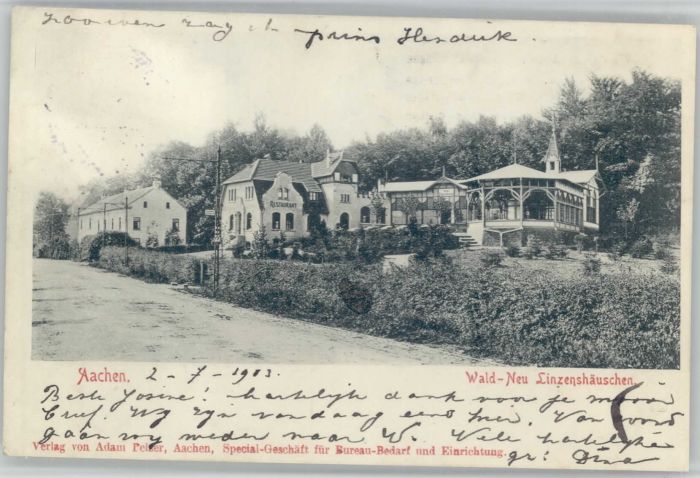 zoo even zag ik prins Hendrik.
RESTAURANT
Aachen. 2-7-1903.
Wald-Neu Linzenshäuschen.
Beste Josine! hartelijk dank voor je mooie
brief. Wij zijn vandaag eens hier. Van avond
gaan wij weder naar W. Vele hartelijke
Verlag von Adam Felser, Aachen, Special-Geschäft für Bureau-Bedarf und Einrichtung.
gr: Dina